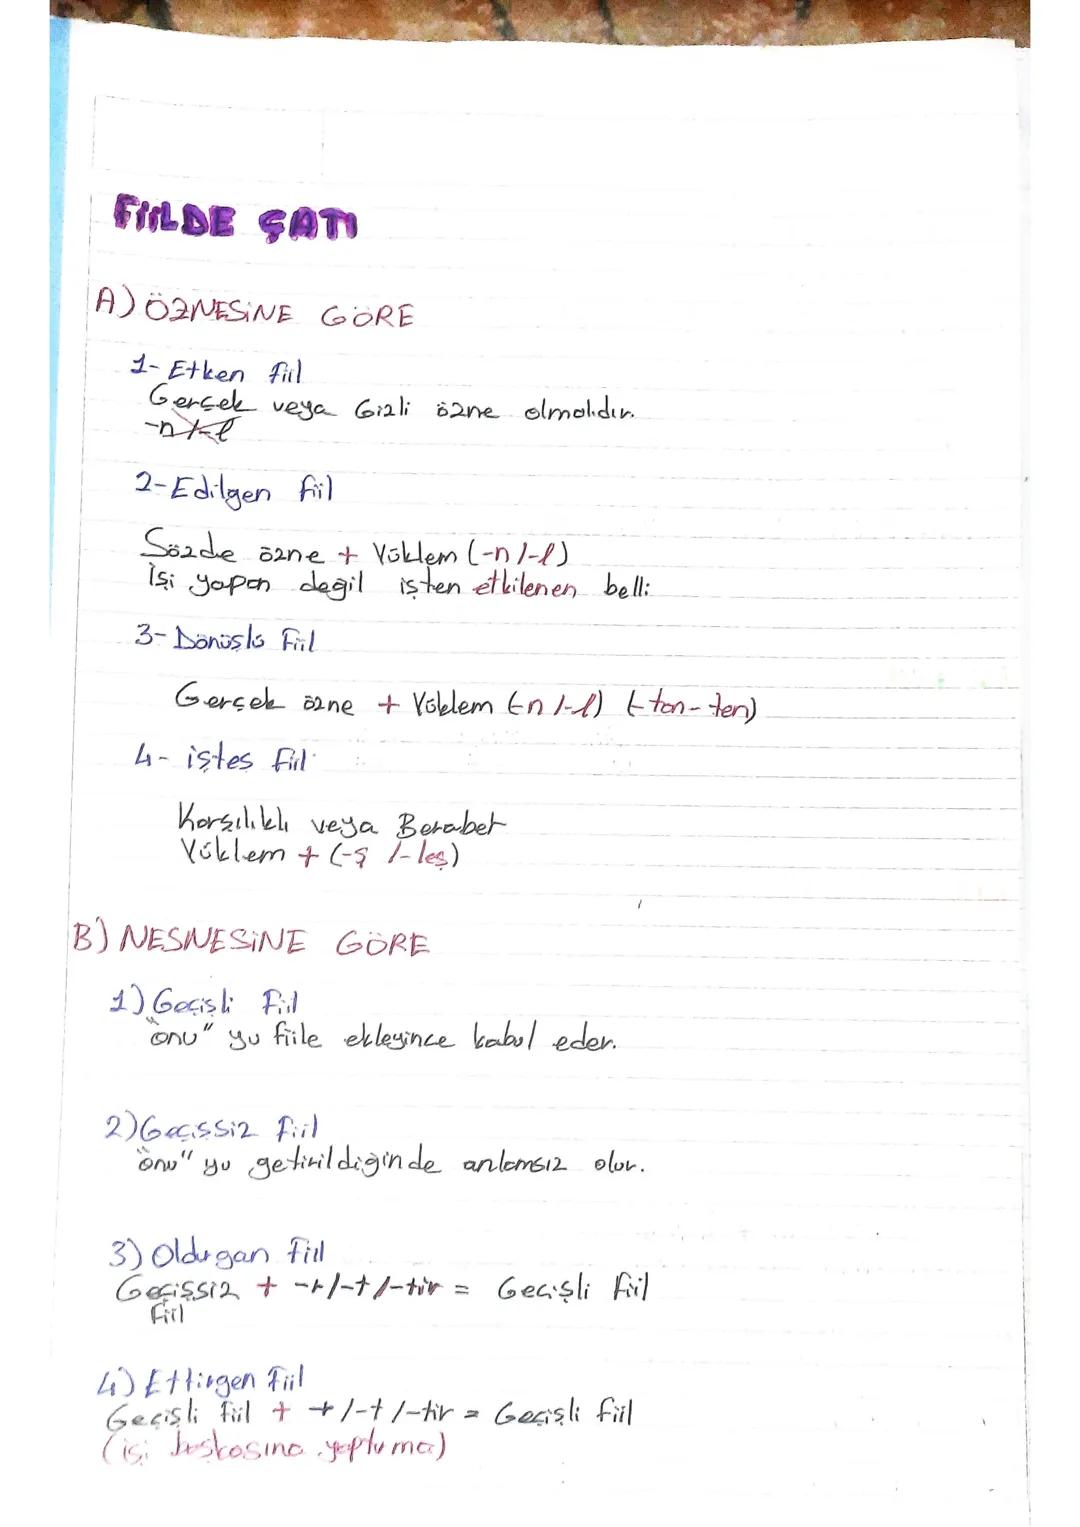 FİİLDE ÇATI
A) ÖZNESİNE GÖRE
1- Etken fiil
Gerçek veya Gizli özne olmalıdır.
-n/-l
2-Edilgen fiil
Sözde özne + Yüklem (-n/-l)
İşi yapan değil işten etkilenen belli
3- Dönüşlü Fiil
Gerçek özne + Yüklem (-n/-l) (-tan-ten)
4- işteş fiil
Karşılıklı veya Beraber
Yüklem + (-ş /-leş)
B) NESNESİNE GÖRE
1) Geçişli Fiil
"onu" yu fiile ekleyince kabul eder.
2) Geçişsiz fiil
"onu" yu getirildiğinde anlamsız olur.
3) Oldurgan Fiil
Geçişsiz + -r/-t/-tır = Geçişli fiil
fiil
4) Ettirgen Fiil
Geçişli fiil + -r/-t/-tir = Geçişli fiil
(işi başkasına yaptırma)